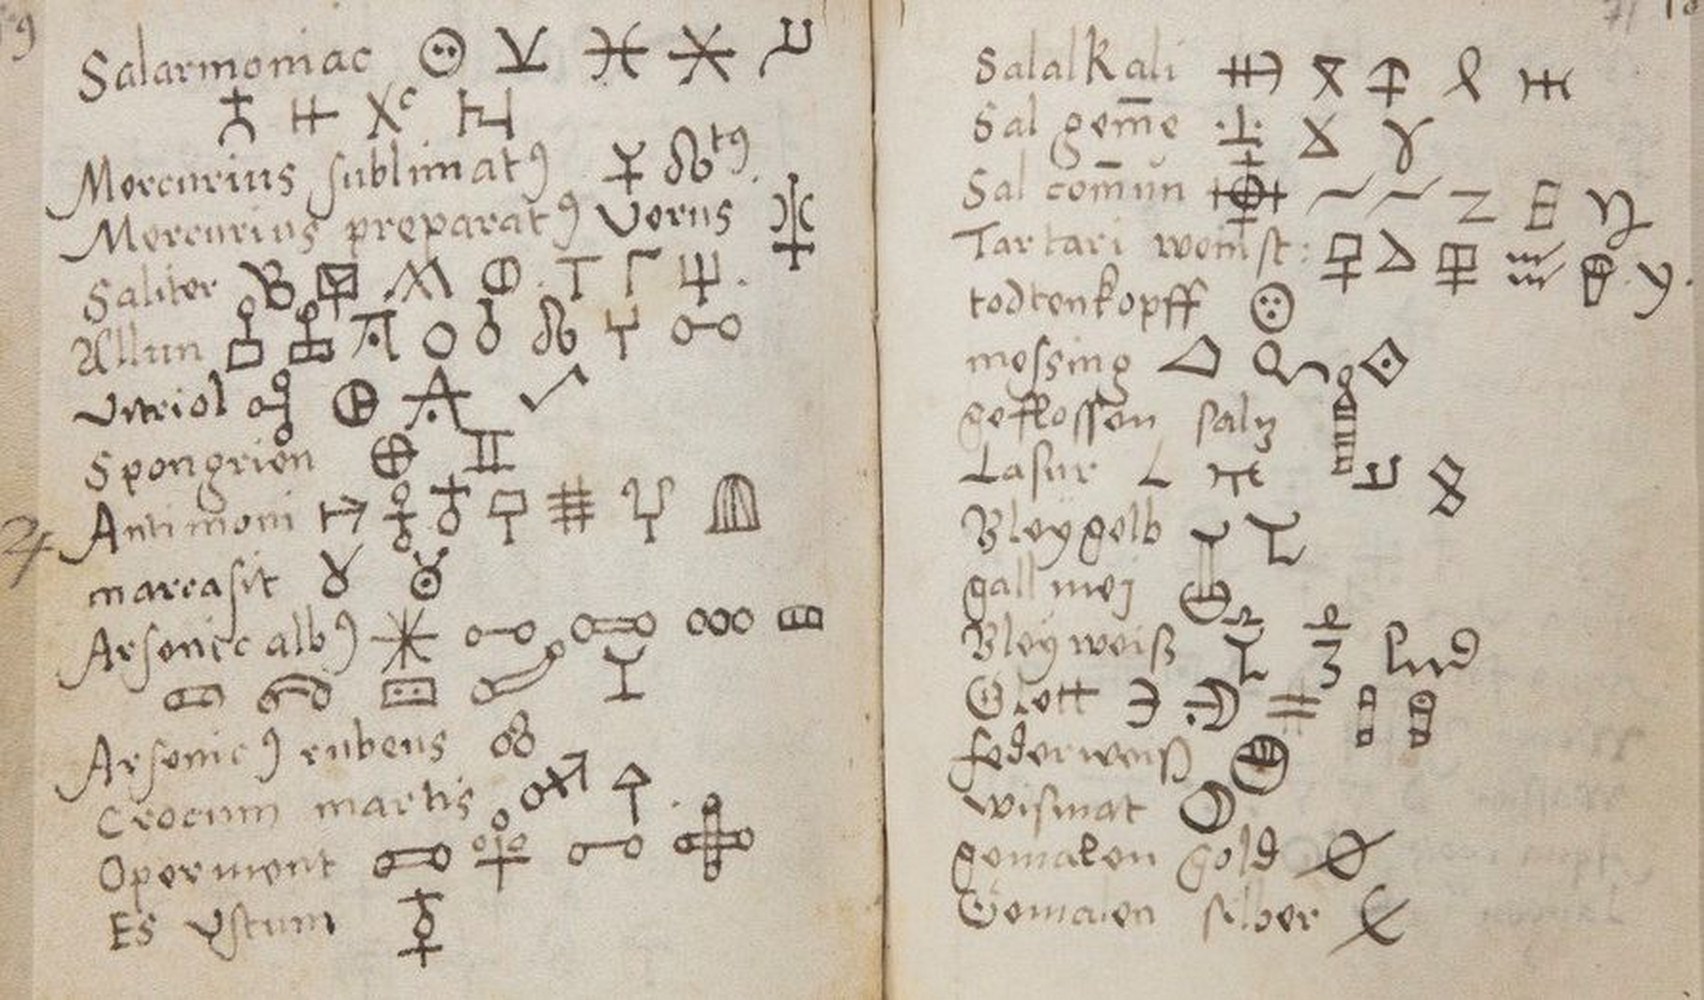 Salarmoniac
Mercurius sublimatꝰ
Mercurius preparatꝰ Verus
Saliter
Allun
Vitriol
Spongrien
Antimoni
marcasit
Arsenic albꝰ
Arsenicꝰ rubeus
Crocum martis
Operment
Es Vstum
Salalkali
Sal gem̄e
Sal com̄un
Tartari weinst:
todtenkopff
messing
geflossen saltz
Lasur
Bleygelb
gallmei
Bleyweiß
Glett
federweiß
wismat
gemalen gold
Gemalen silber